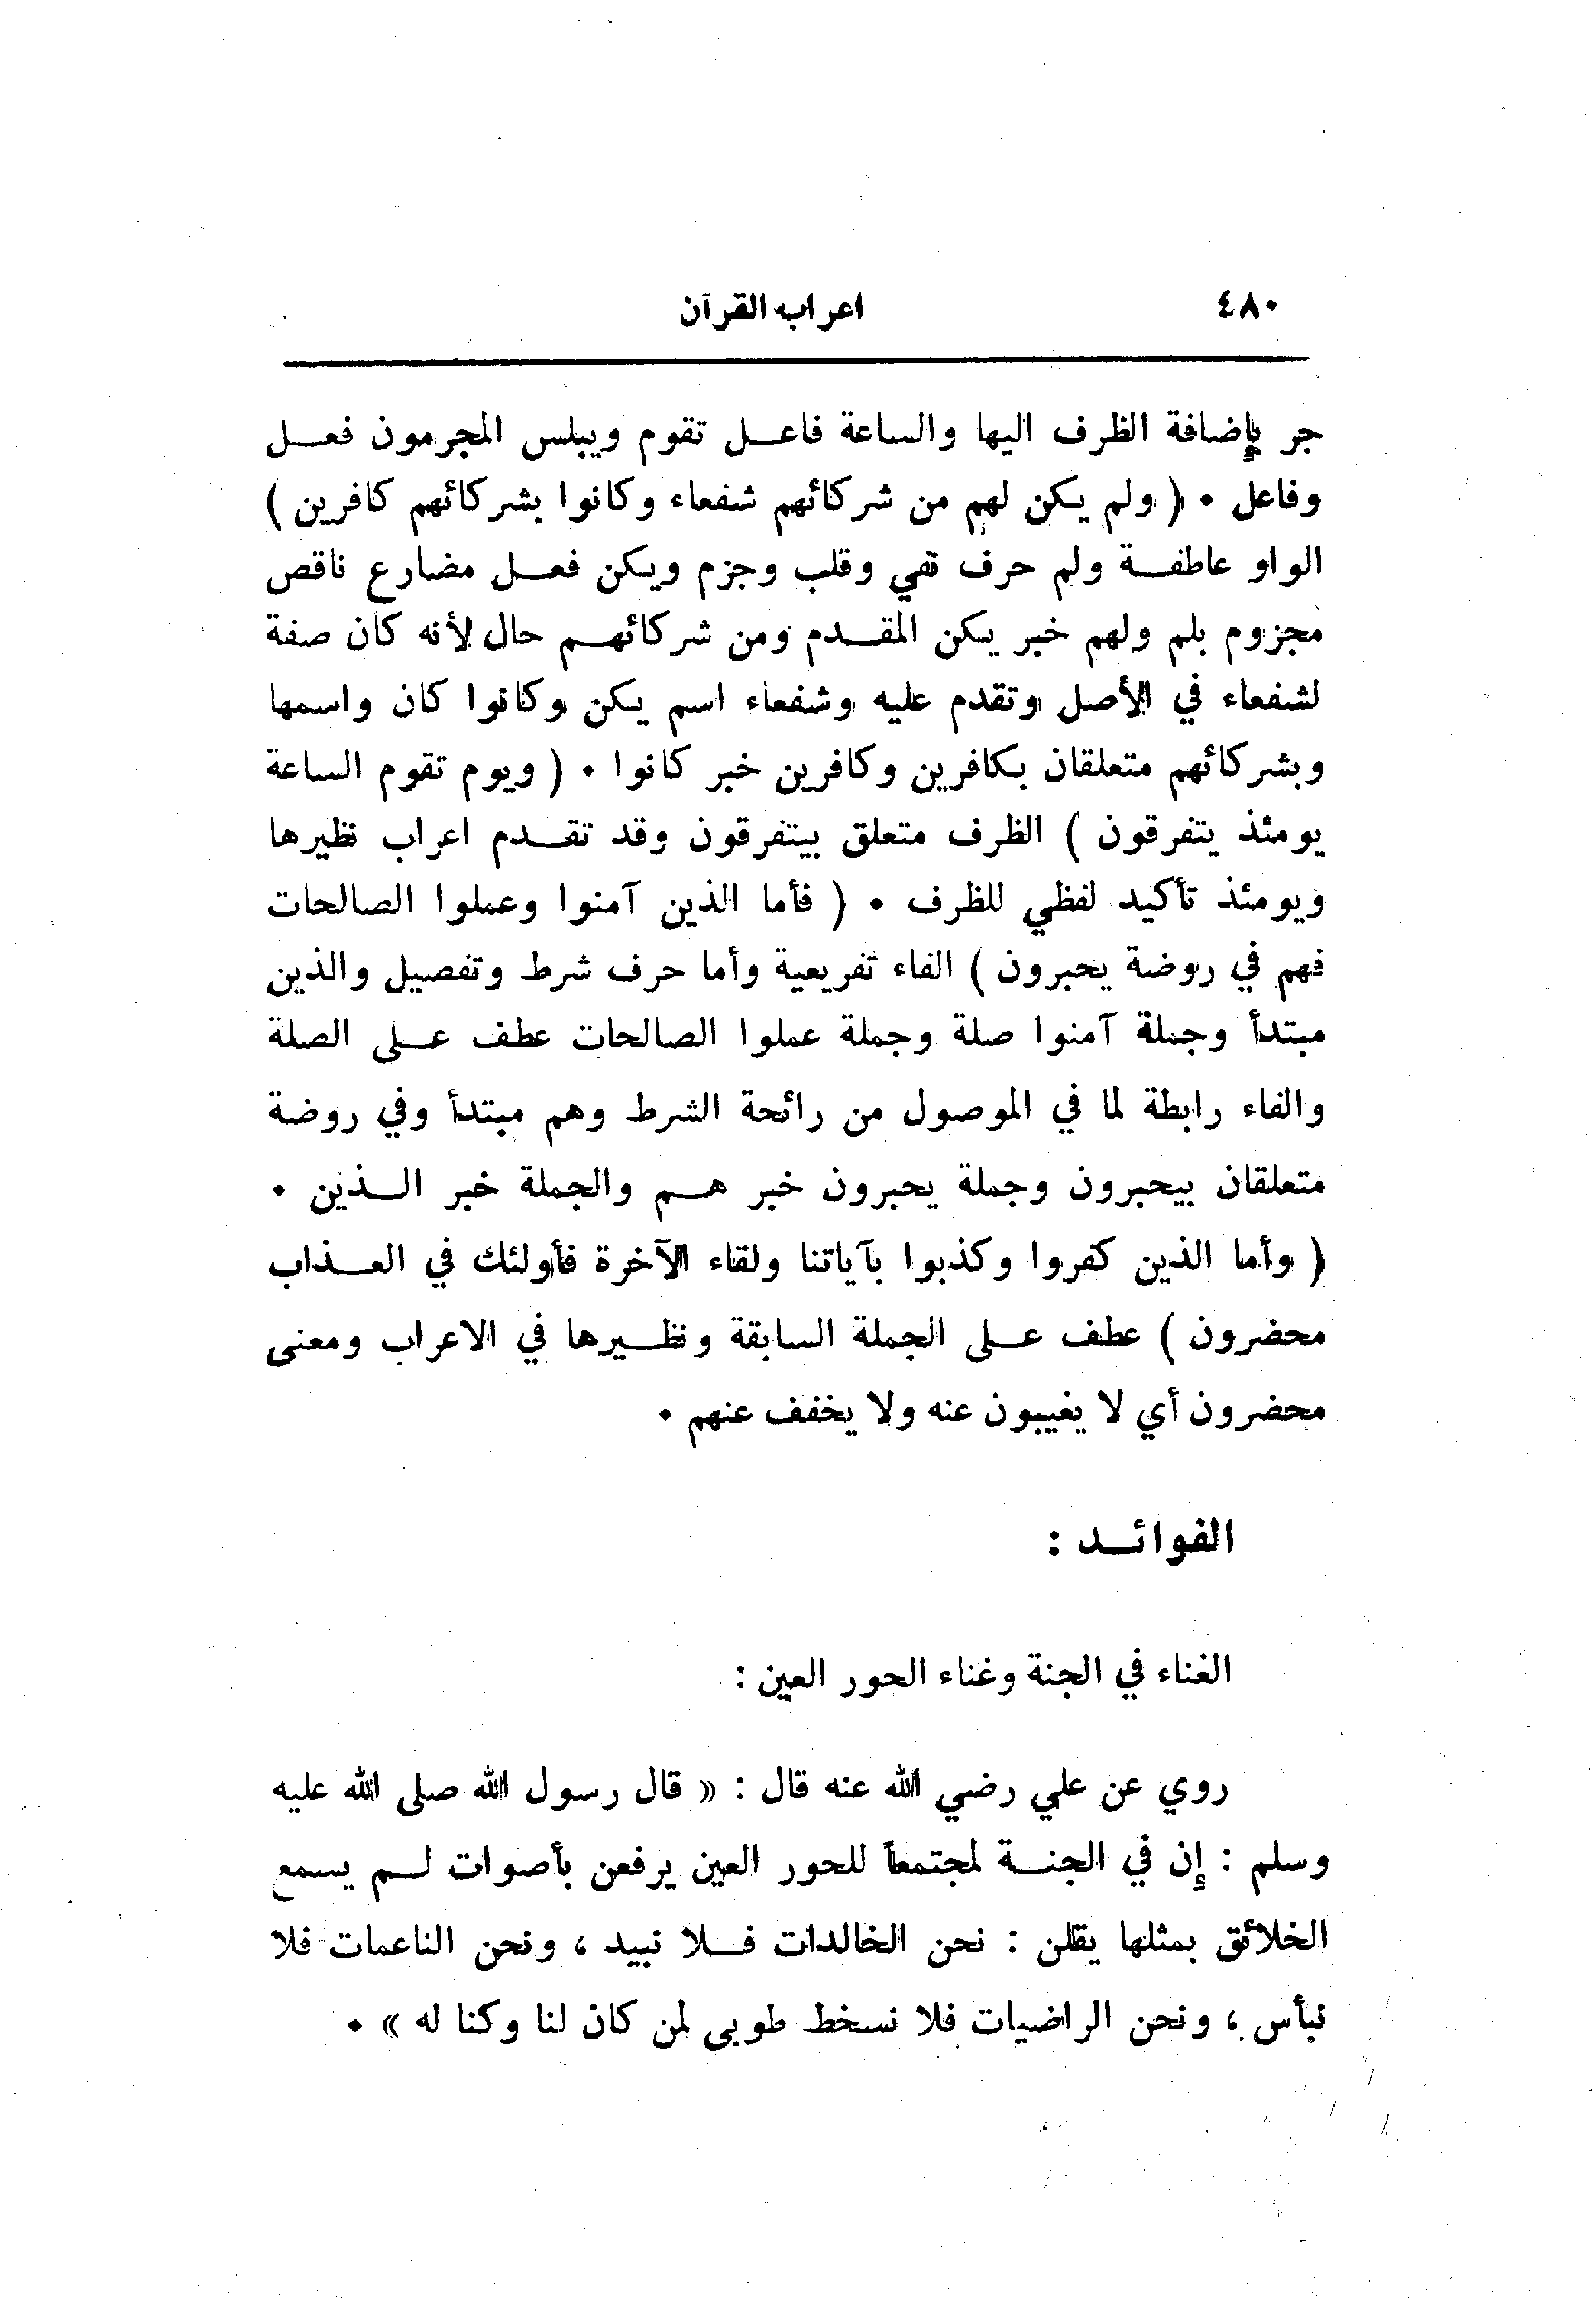 ٤٨٠ اعراب القرآن
جر بإضافة الظرف اليها والساعة فاعل تقوم ويبلس المجرمون فعل
وفاعل . ( ولم يكن لهم من شركائهم شفعاء وكانوا بشركائهم كافرين )
الواو عاطفة ولم حرف نفي وقلب وجزم ويكن فعل مضارع ناقص
مجزوم بلم ولهم خبر يكن المقدم ومن شركائهم حال لأنه كان صفة
لشفعاء في الأصل وتقدم عليه وشفعاء اسم يكن وكانوا كان واسمها
وبشركائهم متعلقان بكافرين وكافرين خبر كانوا . ( ويوم تقوم الساعة
يومئذ يتفرقون ) الظرف متعلق بيتفرقون وقد تقدم اعراب نظيرها
ويومئذ تأكيد لفظي للظرف . ( فأما الذين آمنوا وعملوا الصالحات
فهم في روضة يحبرون ) الفاء تفريعية وأما حرف شرط وتفصيل والذين
مبتدأ وجملة آمنوا صلة وجملة عملوا الصالحات عطف على الصلة
والفاء رابطة لما في الموصول من رائحة الشرط وهم مبتدأ وفي روضة
متعلقان بيحبرون وجملة يحبرون خبر هم والجملة خبر الذين .
( وأما الذين كفروا وكذبوا بآياتنا ولقاء الآخرة فأولئك في العذاب
محضرون ) عطف على الجملة السابقة ونظيرها في الاعراب ومعنى
محضرون أي لا يغيبون عنه ولا يخفف عنهم .
الفوائد :
الغناء في الجنة وغناء الحور العين :
روي عن علي رضي الله عنه قال : « قال رسول الله صلى الله عليه
وسلم : إن في الجنة لمجتمعاً للحور العين يرفعن بأصوات لم يسمع
الخلائق بمثلها يقلن : نحن الخالدات فلا نبيد ، ونحن الناعمات فلا
نبأس ، ونحن الراضيات فلا نسخط طوبى لمن كان لنا وكنا له » .